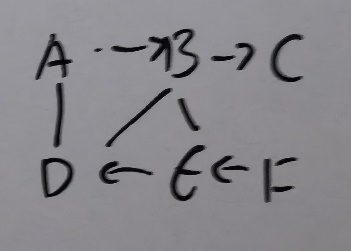 A → B → C
D ← E ← F